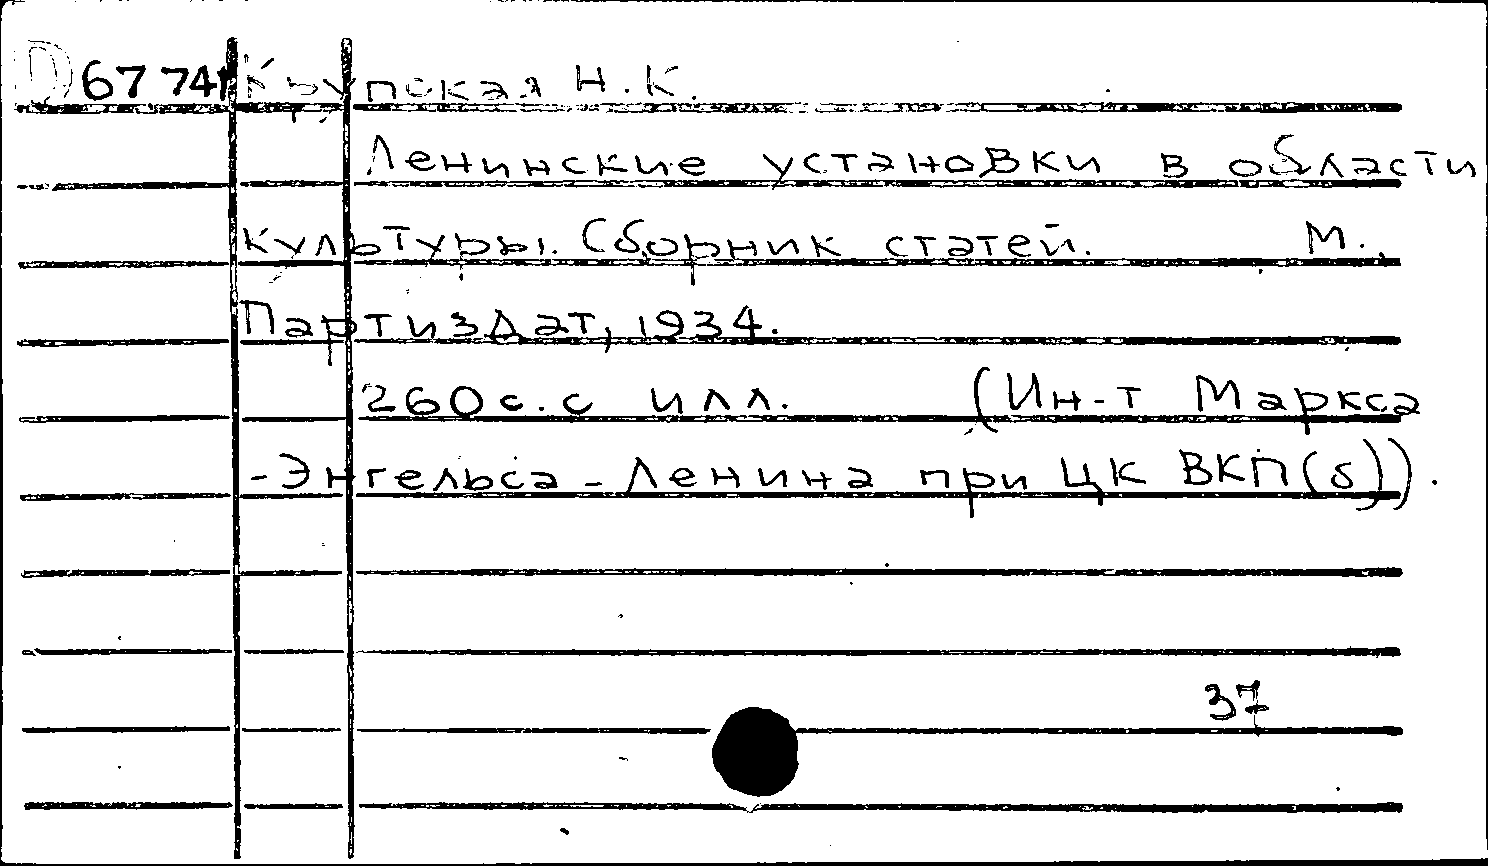 D 67 741 Крупская Н.К.
Ленинские установки в области
культуры. Сборник статей. М.,
Партиздат, 1934.
260 с. с илл. (Ин-т Маркса
-Энгельса-Ленина при ЦК ВКП(б)).
37